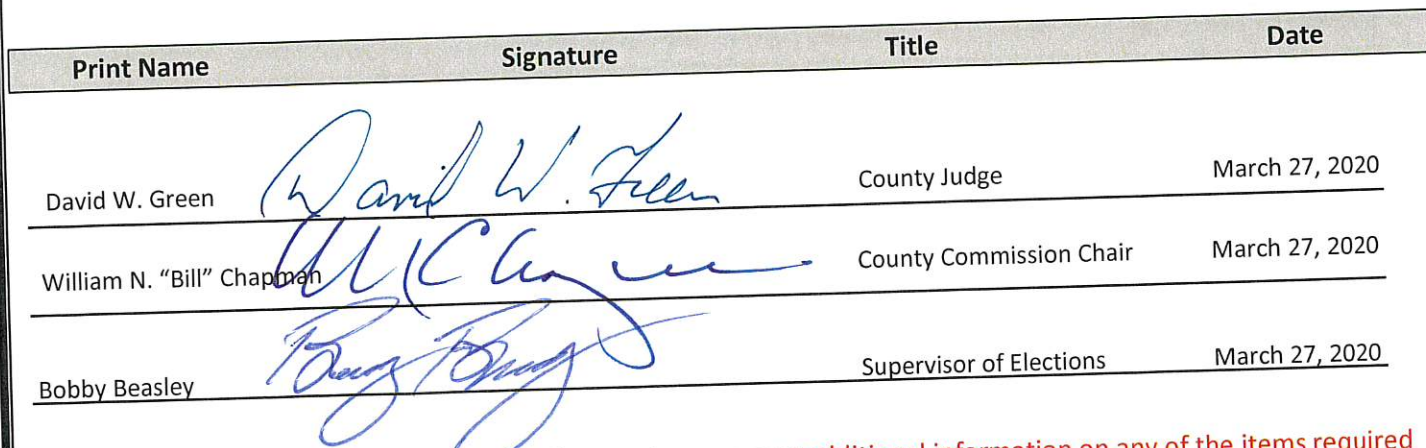 Print Name Signature Title Date
David W. Green David W. Green County Judge March 27, 2020
William N. “Bill” Chapman County Commission Chair March 27, 2020
Bobby Beasley Supervisor of Elections March 27, 2020
additional information on any of the items required